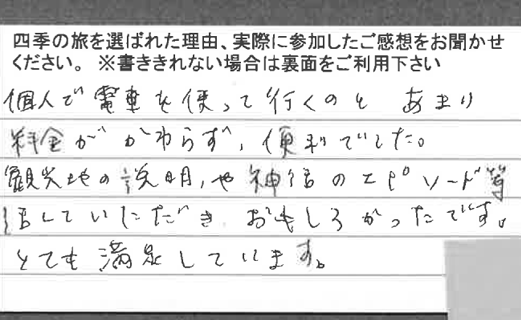 四季の旅を選ばれた理由、実際に参加したご感想をお聞かせ
ください。 ※書ききれない場合は裏面をご利用下さい
個人で電車を使って行くのと あまり
料金がかわらず、便利でした。
観光地の説明,や神話のエピソード等
話していただき おもしろかったです。
とても満足しています。